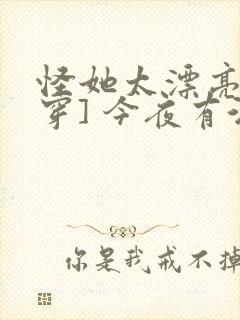 怪她太漂亮
穿] 今夜有
你是我戒不掉